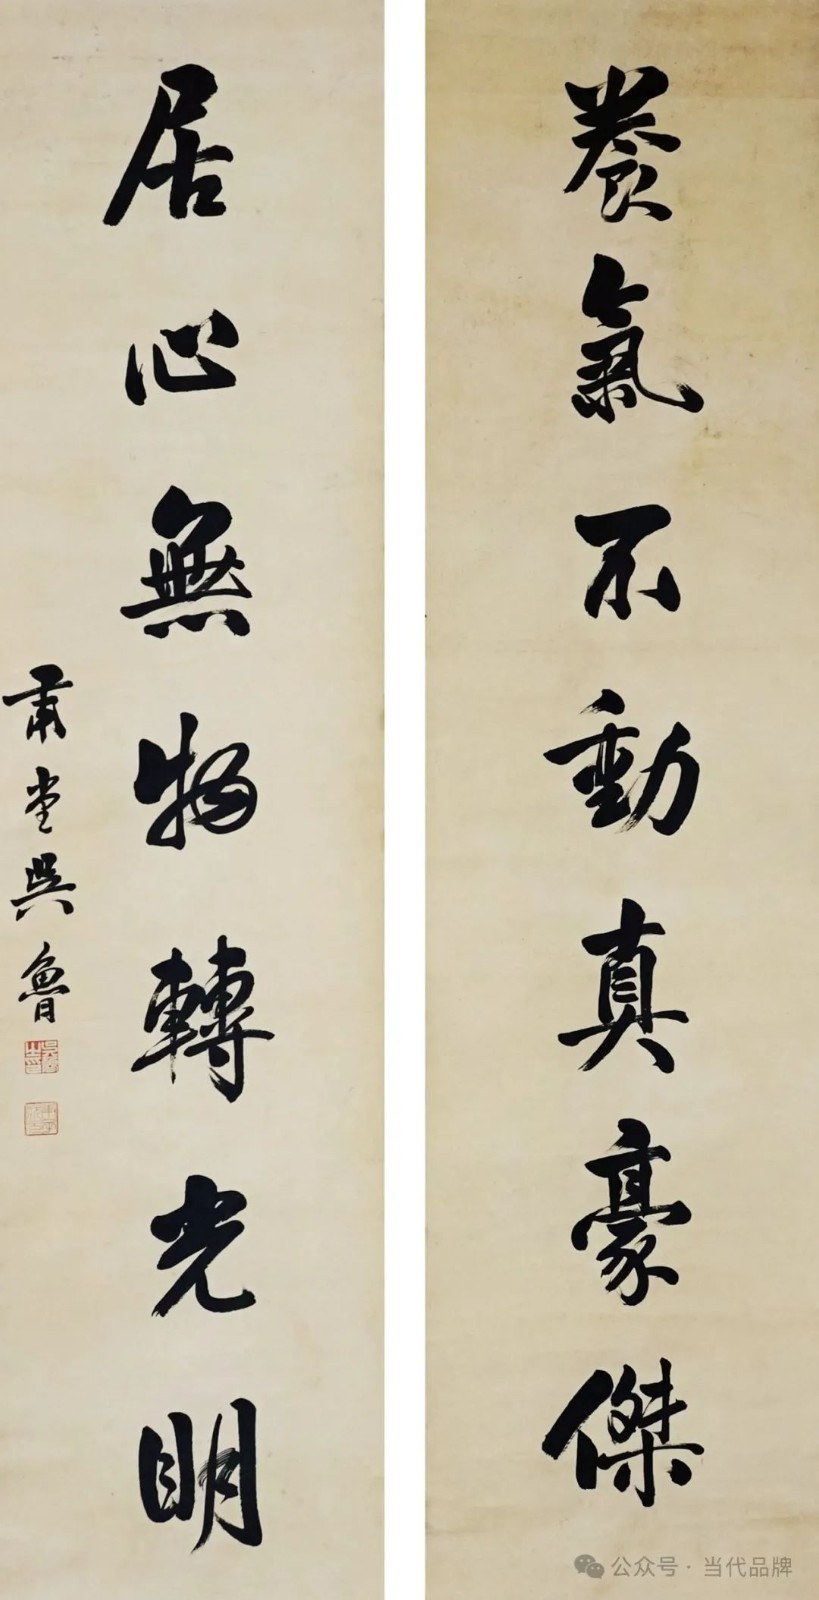 養氣不動真豪傑
居心無物轉光明
肅堂吳魯
公众号·当代品牌